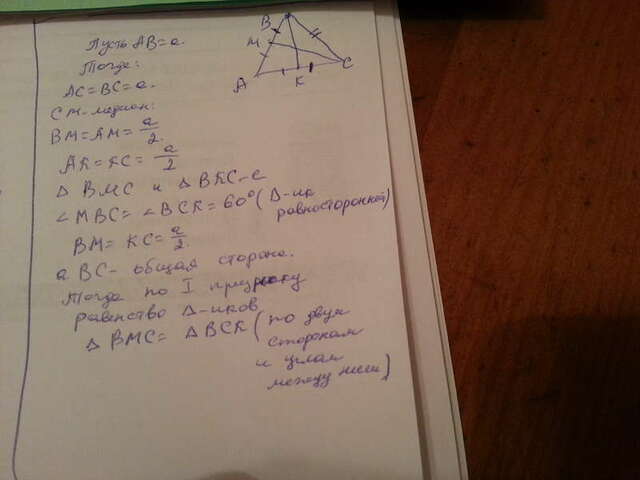 B
M
A
K
C
Пусть AB=a.
Тогда:
AC=BC=a.
CM-медиан:
BM=AM=a/2.
AK=KC=a/2
Δ BMC и Δ BKC-
∠MBC=∠BCK=60° (Δ-ик
равносторонний)
BM=KC=a/2.
а BC- общая сторона.
Тогда по I признаку
равенство Δ-иков
Δ BMC= Δ BCK (по двум
сторонам
и углам
между ними)